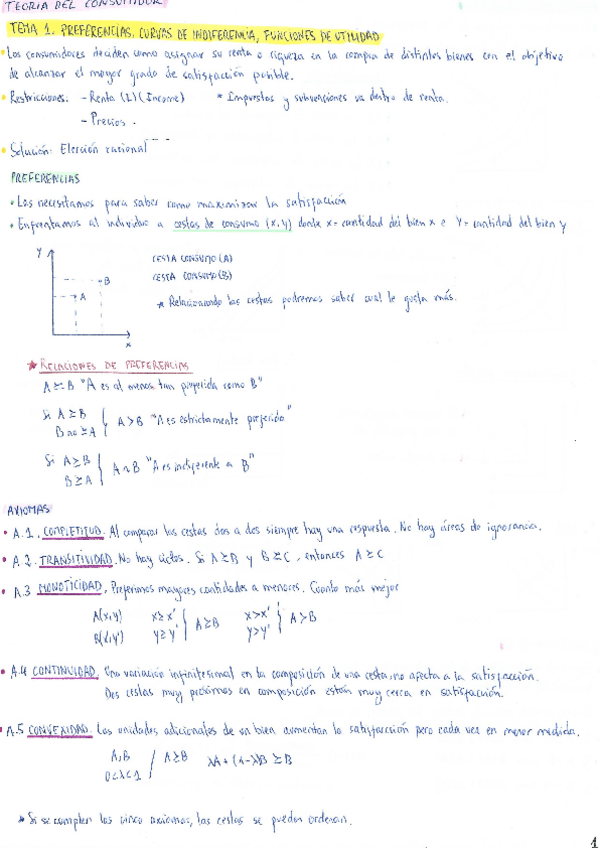 TEORIA DEL CONSUMIDOR
TEMA 1. PREFERENCIAS, CURVAS DE INDIFERENCIA, FUNCIONES DE UTILIDAD
• Los consumidores deciden como asignar su renta o riqueza en la compra de distintos bienes con el objetivo
de alcanzar el mayor grado de satisfacción posible.
• Restricciones: - Renta (I) (Income) * Impuestos y subvenciones va dentro de renta.
- Precios.
• Solución: Elección racional
PREFERENCIAS
• Las necesitamos para saber como maximizar la satisfacción
• Enfrentamos al individuo a cestas de consumo (x,y) donde x= cantidad del bien x e Y= cantidad del bien y
Y
CESTA CONSUMO (A)
B
CESTA CONSUMO (B)
A
* Relacionando las cestas podremos saber cual le gusta más.
x
* RELACIONES DE PREFERENCIAS
A ≥ B "A es al menos tan preferida como B"
Si A ≥ B
B no ≥ A } A > B "A es estrictamente preferida"
Si A ≥ B
B ≥ A } A ~ B "A es indiferente a B"
AXIOMAS
• A.1. COMPLETITUD. Al comparar las cestas dos a dos siempre hay una respuesta. No hay áreas de ignorancia.
• A.2. TRANSITIVIDAD. No hay ciclos. Si A ≥ B y B ≥ C, entonces A ≥ C
• A.3 MONOTICIDAD. Preferimos mayores cantidades a menores. Cuanto más mejor
A(x,y) x ≥ x' } A ≥ B x > x' } A > B
B(x',y') y ≥ y' y > y'
• A.4 CONTINUIDAD. Una variación infinitesimal en la composición de una cesta, no afecta a la satisfacción.
Dos cestas muy próximas en composición están muy cerca en satisfacción.
• A.5 CONVEXIDAD. Las unidades adicionales de un bien aumentan la satisfacción pero cada vez en menor medida.
A,B / A ≥ B λA + (1-λ)B ≥ B
0<λ<1
* Si se cumplen los cinco axiomas, las cestas se pueden ordenar.
1